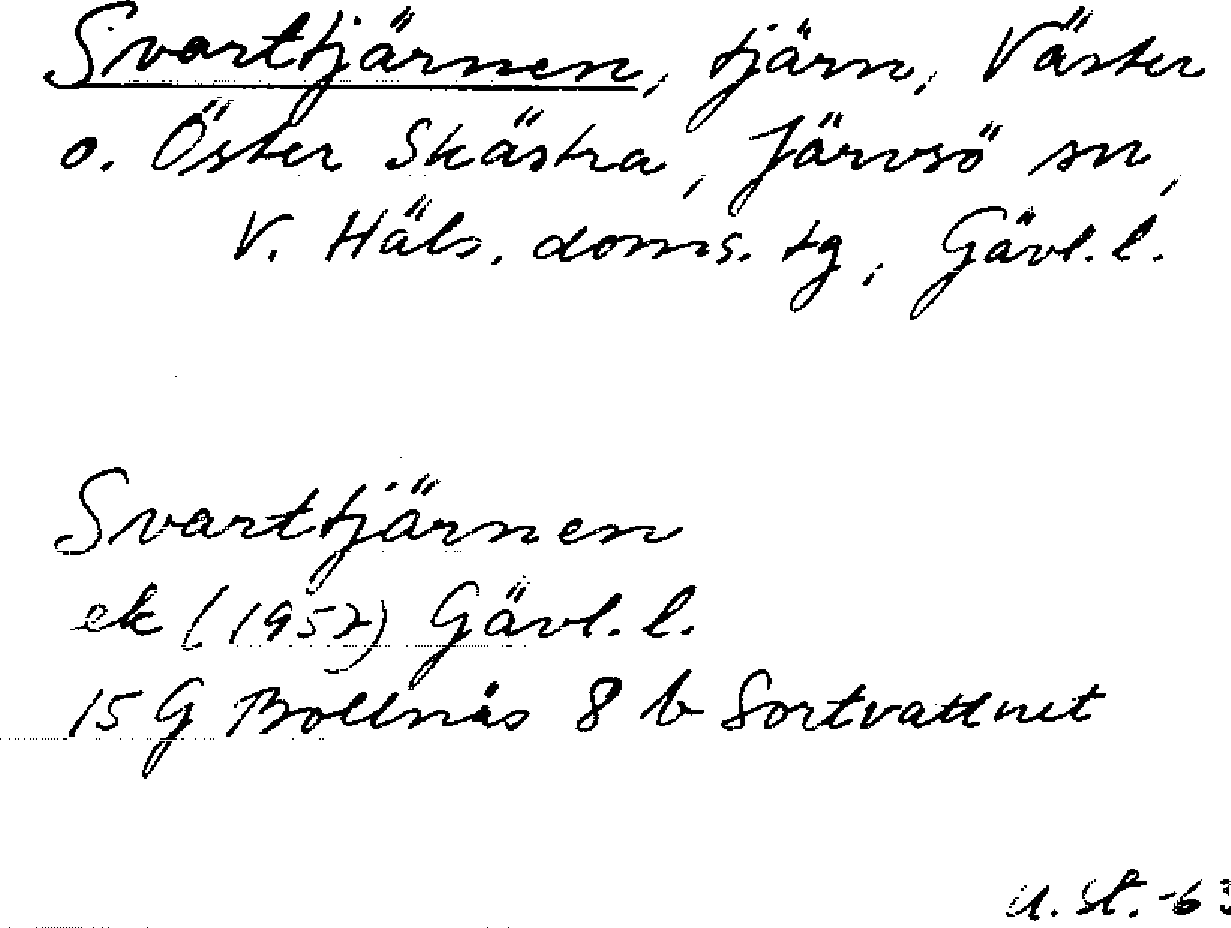 Svarttjärnen, tjärn, Väster
o. Öster Skästra, Järvsö sn,
V. Häls. doms. tg, Gävl. l.
Svarttjärnen
ek (1957) Gävl. l.
15 G Bollnäs 8 b Sortvattnet
U. St. -63